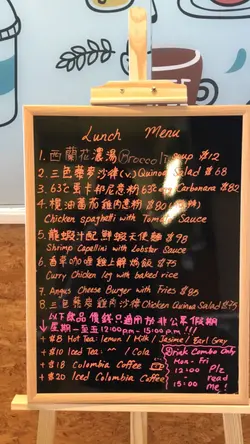 Lunch Menu
1. 西蘭花濃湯 Broccoli Soup $12
2. 三色藜麥沙律 (v) Quinoa Salad $68
3. 63℃蛋卡邦尼意粉 63℃ Carbonara $82
4. 番茄雞肉意粉 $80
Chicken spaghetti with Tomato Sauce
5. 龍蝦汁配鮮蝦天使麵 $98
Shrimp Capellini with Lobster Sauce
6. 咖喱雞 焗飯 $75
Curry Chicken leg with baked rice
7. Angus Cheese Burger with Fries $85
8. 三色藜麥雞肉沙律 Chicken Quinoa Salad $75
以下飲品價錢只適用於非公眾假期
星期一至五 12:00pm - 15:00pm !!!
+$8 Hot Tea: lemon / Milk / Jasime / Earl Gray
+$10 Iced Tea: / Cola
+$18 Colombia Coffee
+$20 Iced Colombia Coffee
Brick Combo Only
Mon - Fri
12:00 Ple
read
15:00 me!